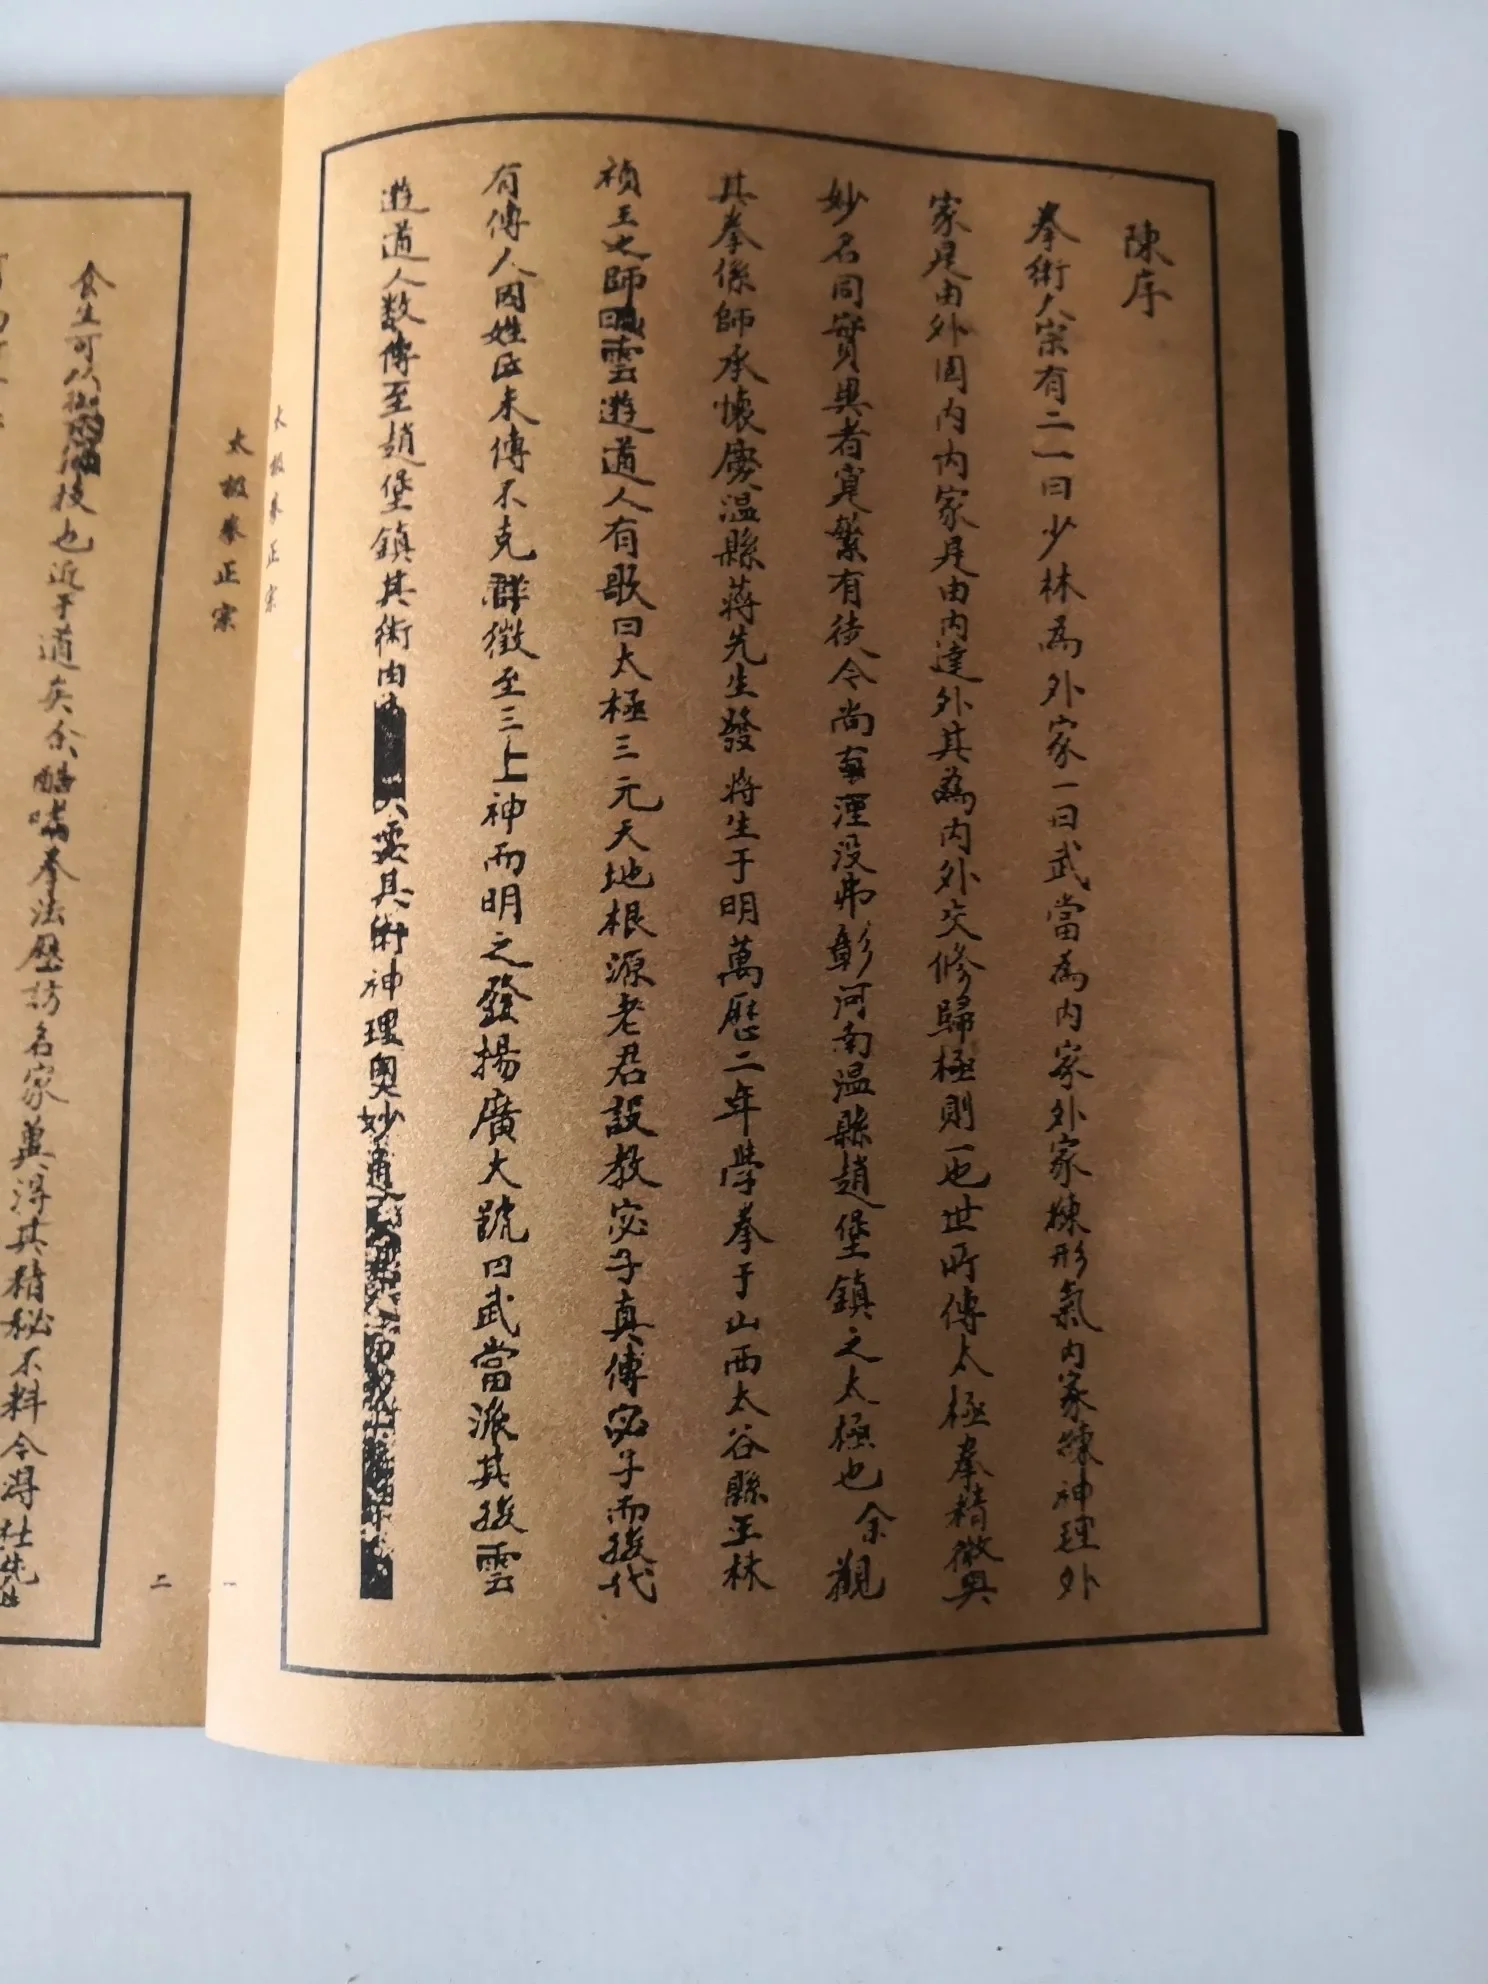 陳序
拳術大宗有二一曰少林為外家一曰武當為內家外家練形氣內家練神理外
家是由外固內內家是由內達外其為內外交修歸極則一也世所傳太極拳精微奧
妙名同實異者寔繁有徒今尚湮没弗彰河南温縣趙堡鎮之太極也余觀
其拳係師承懷慶温縣蔣先生發蔣生于明萬歷二年學拳于山西太谷縣王林
禎王之師曰雲遊道人有歌曰太極三元天地根源老君設教宓子真傳宓子而後代
有傳人因姓氏未傳不克詳徵至三上神而明之發揚廣大號曰武當派其後雲
遊道人数傳至趙堡鎮其術由其術神理奧妙通
太極拳正宗
一
太極拳正宗
二
食生可以技也近于道矣余酷嗜拳法歷訪名家冀得其精秘不料今得杜先生